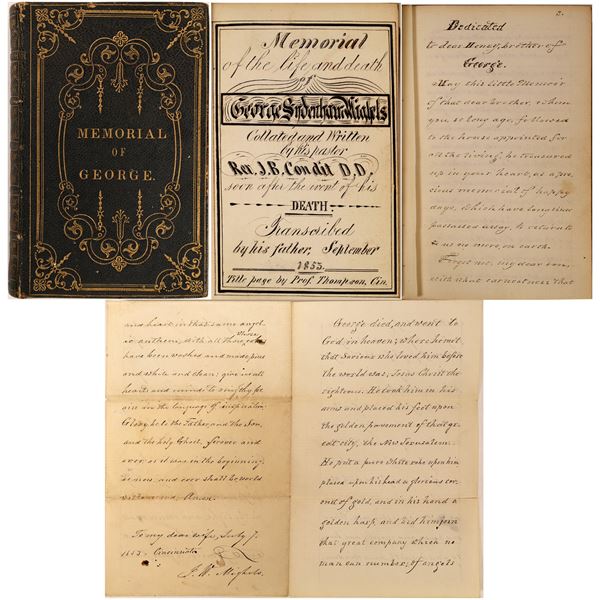 MEMORIAL
OF
GEORGE.
Memorial
of the life and death
of
George Sydenham Mighels
Collated and Written
by his pastor
Rev. J. B. Condit D,D,
soon after the event of his
DEATH.
Transcribed
by his father, September
1853.
Title page by Prof. Thompson, Cin.
2.
Dedicated
to dear Henry, brother of
George.
May this little Memoir
of that dear brother, whom
you, so long ago, followed
to the house appointed for
all the living, be treasured
up in your heart, as a pre-
cious memorial of happy
days, which have long since
passed away, to return to
us no more, on earth.
Forget not, my dear son,
with what earnestness that
and heart in that same angel-
ic anthem, with all those, whose
robes
have been washed and made pure
and white and clean: give us all
hearts and minds to
are in the language of inspiration:
Glory be to the Father, and the Son,
and the holy Ghost, forever and
ever: as it was in the beginning,
is now, and ever shall be, world
without end, Amen.
To my dear wife, July 7.
1853. Cincinnati
J. W. Mighels.
George died, and went to
God in heaven; where he met
that Saviour who loved him before
the world was; Jesus Christ the
righteous. He took him in his
arms and placed his feet upon
the golden pavement of that gr-
eat city, the New Jerusalem.
He put a pure white robe upon him
placed upon his head a glorious cor-
onet of gold, and in his hand a
golden harp, and bid him join
that great company which no
man can number, of angels